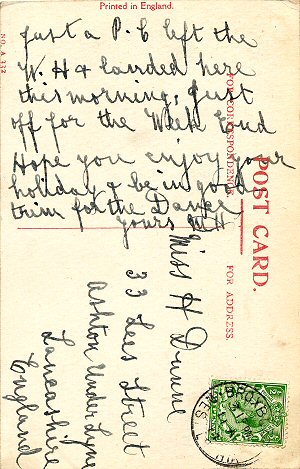 Printed in England.
NO. A 332
Just a P. C left the
W. H & landed here
this morning. Just
off for the Week End
Hope you enjoy your
holiday & be in good
trim for the Dance
yours W H
POST CARD.
FOR CORRESPONDENCE.
FOR ADDRESS.
Miss H Dunne
33 Lees Street
Ashton Under Lyne
Lancashire
England